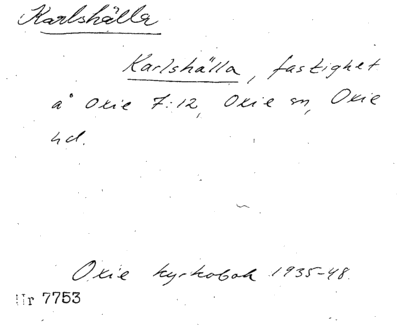 Karlshälla
Karlshälla, fastighet
å Oxie 7:12, Oxie sn, Oxie
hd.
Oxie kyrkobok 1935-48.
Nr 7753